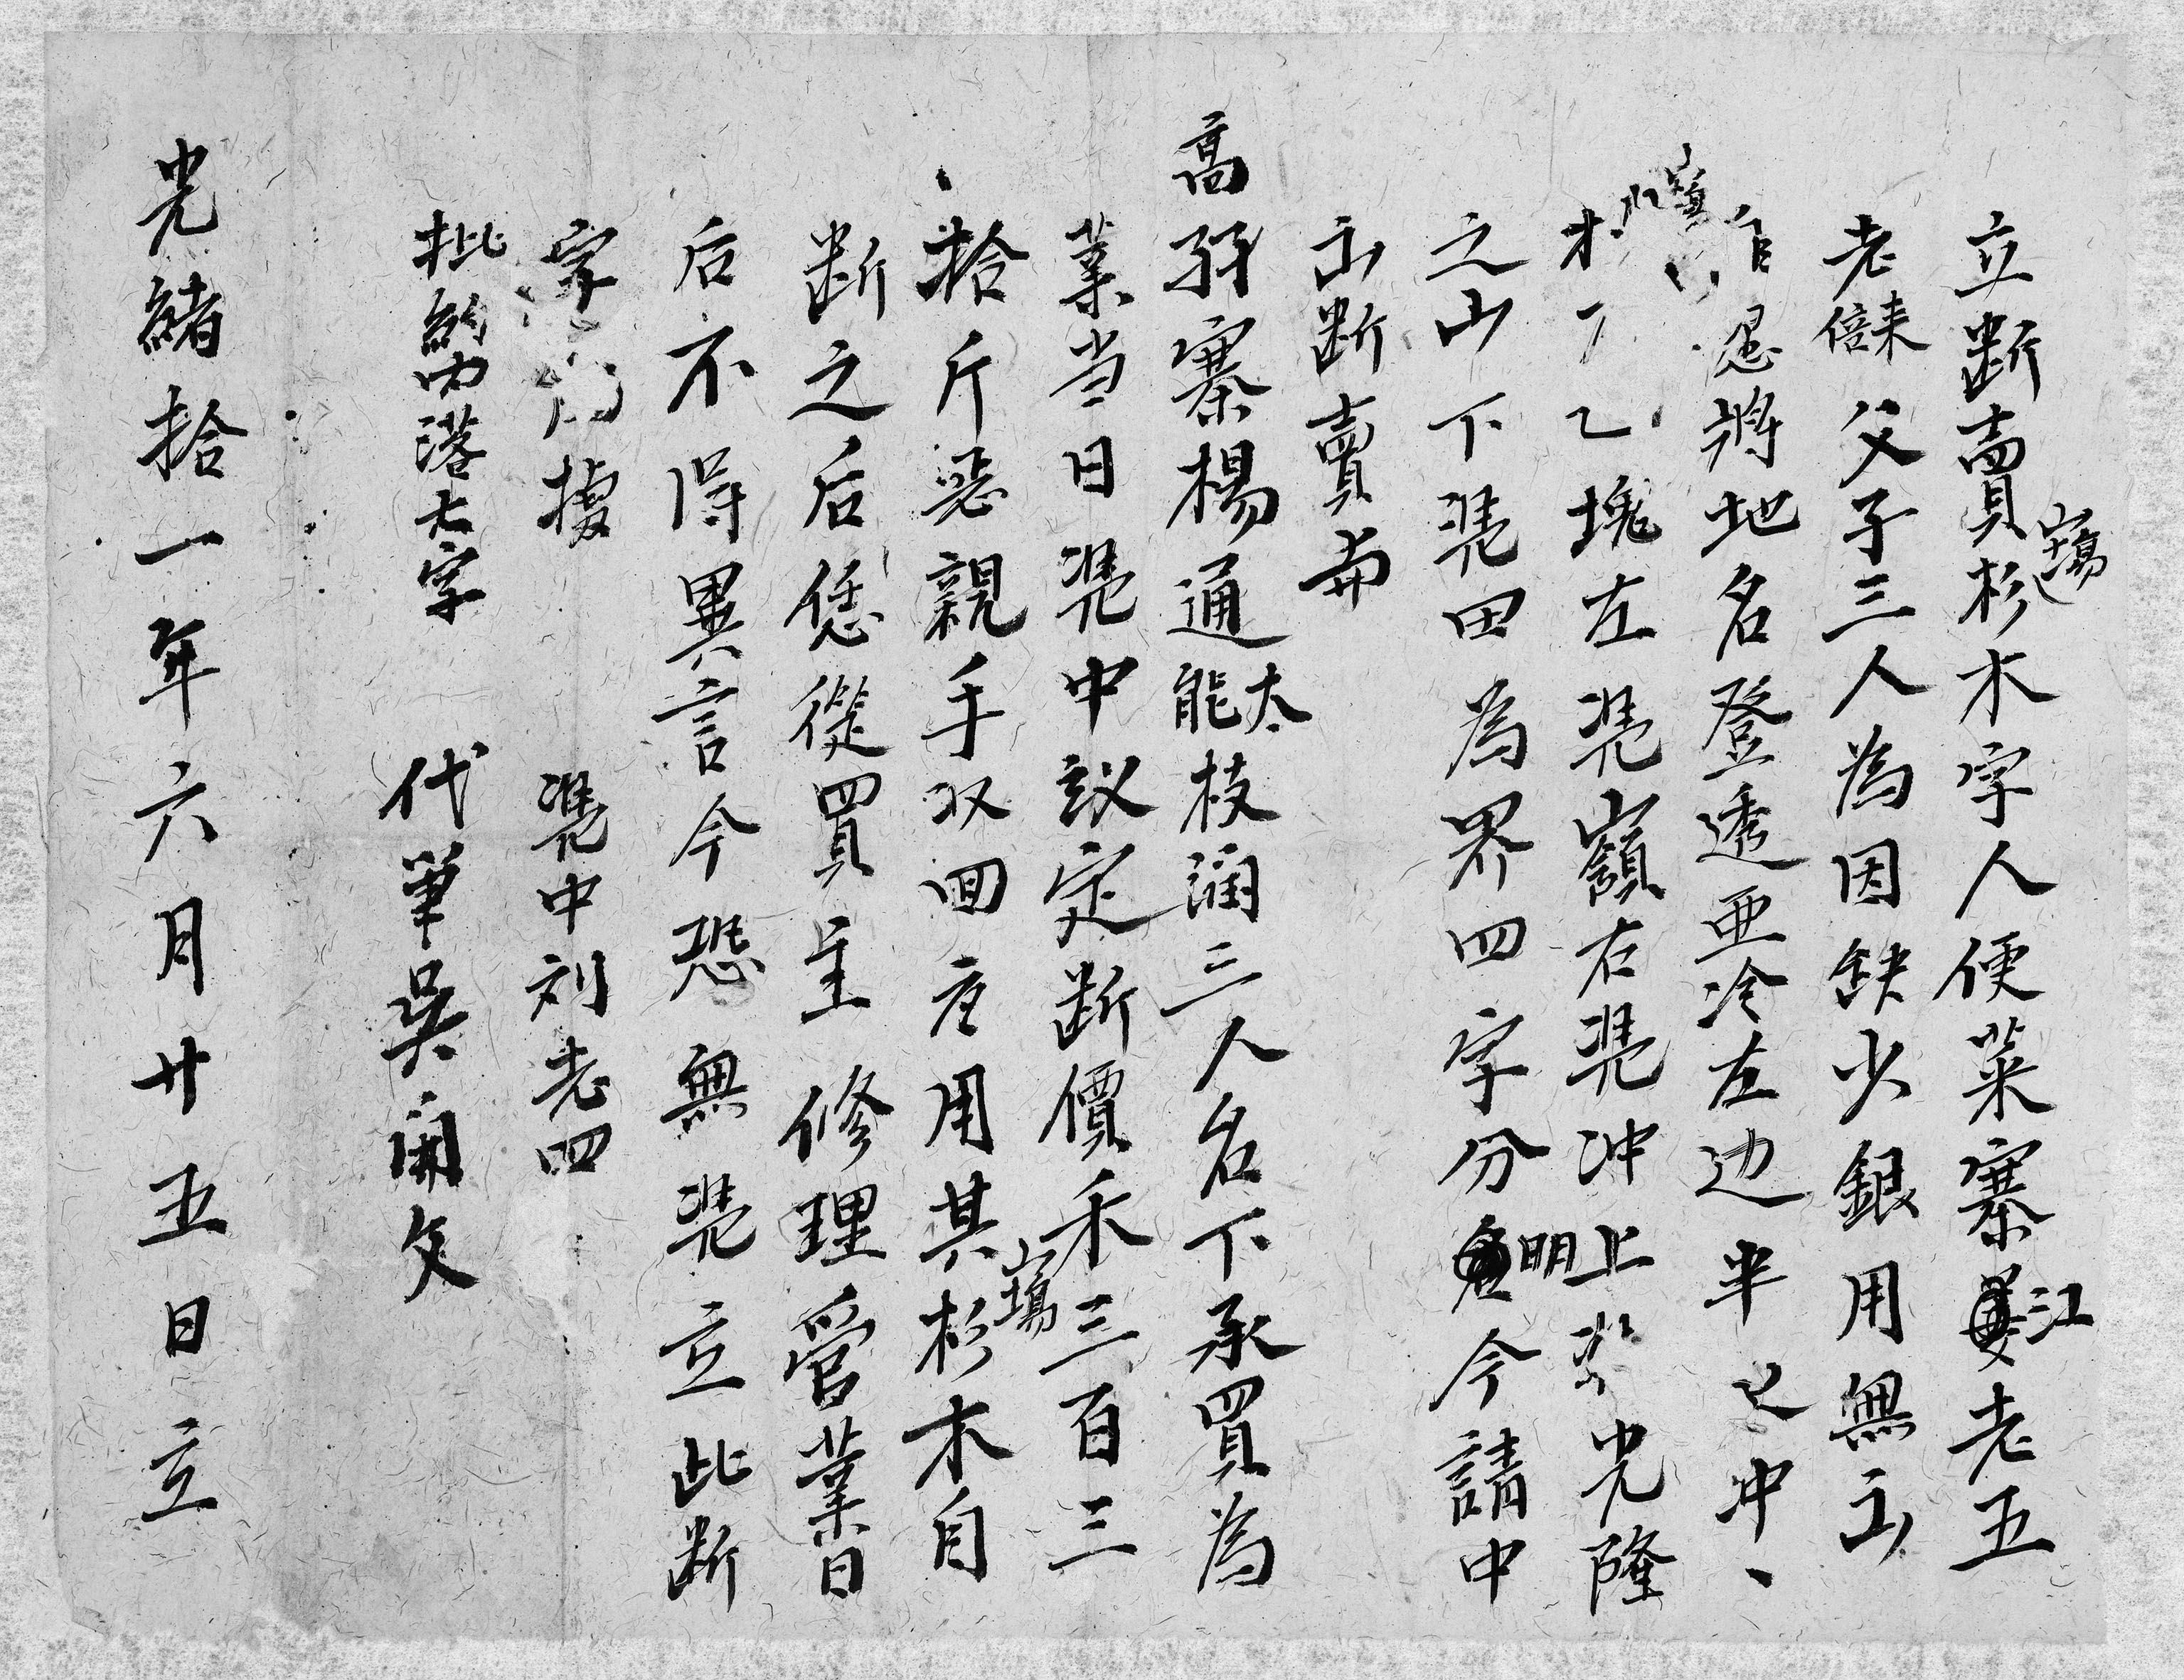 立断賣杉山塲木字人便菜寨江老五
老倍耒父子三人為因缺少銀用無
自愿將地名登透亜冷左边半冲
木乙塊左凴嶺右凴冲上光隆
之山下凴田為界四字分明今請中
断賣與
高孖寨楊通能太枝潤三人名下承買為
業当日凴中議定断價禾三百三
拾斤親手収回应用其杉山塲木自
断之后恁從買主修理管業日
后不得異言今恐無凴立此断
字據 凴中刘老四
批約内落六字 代筆吳開文
光緒拾一年六月廿五日立